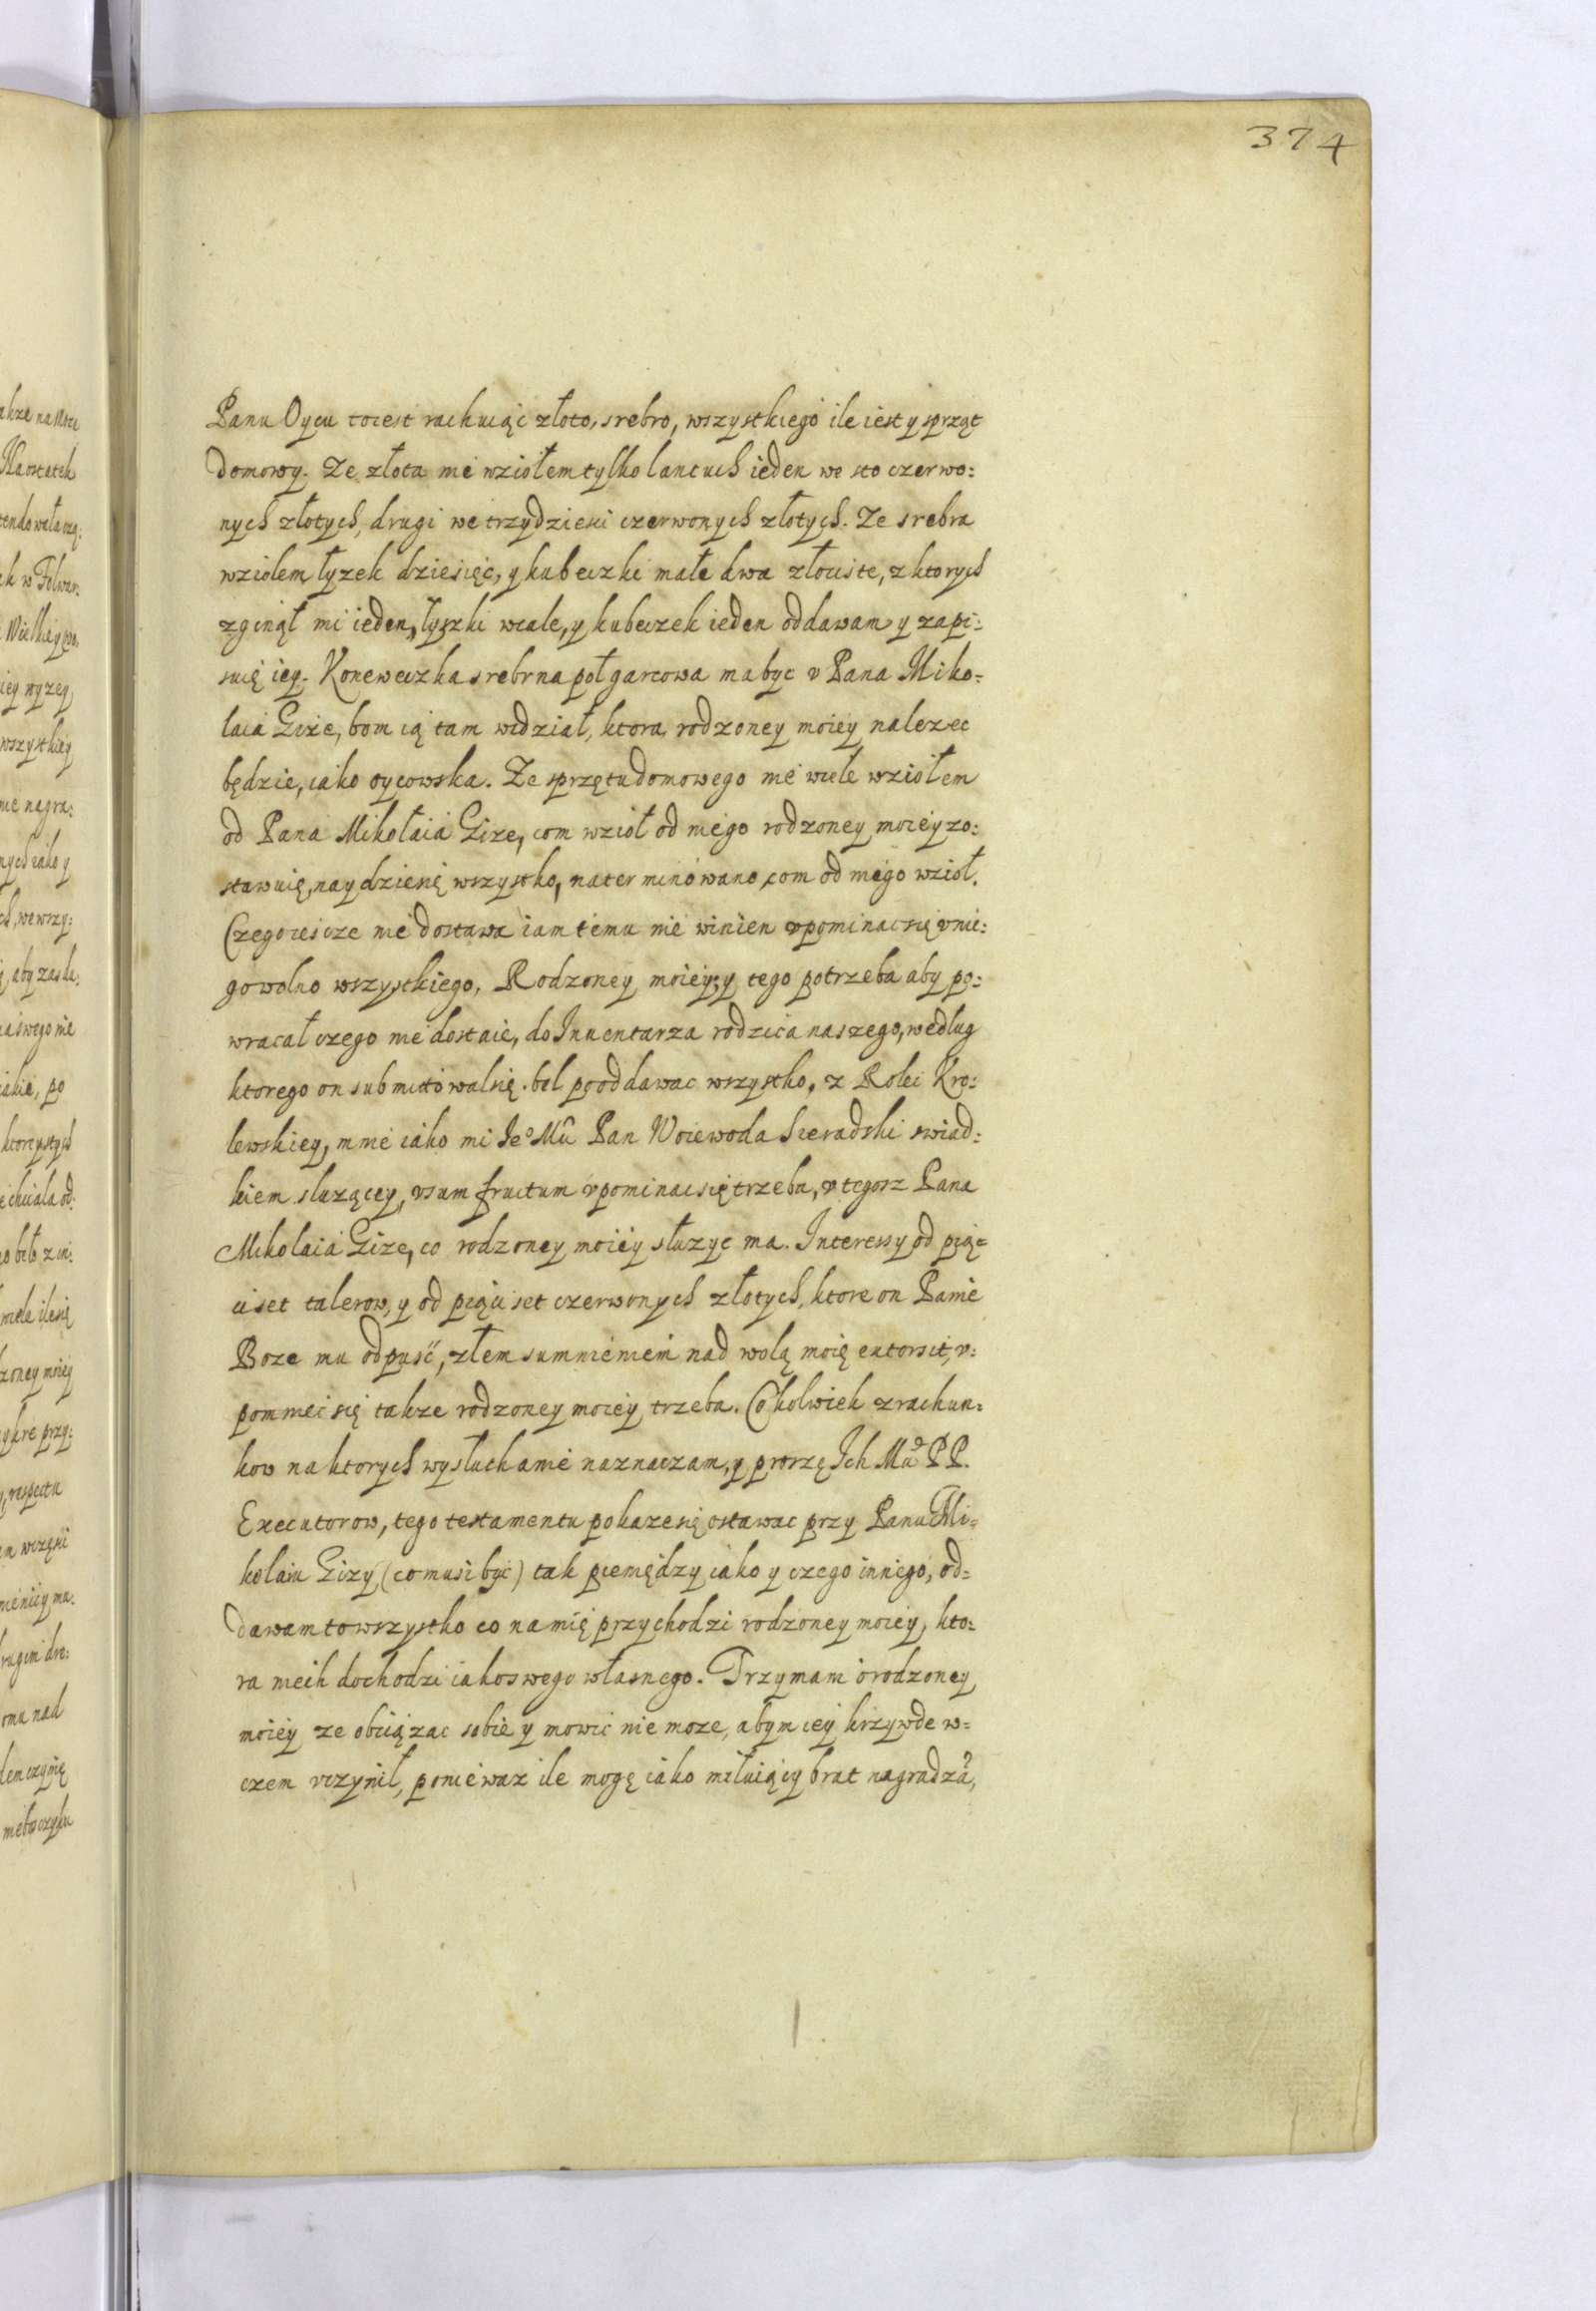 374
Panu Oycu toiest rachuiąc złoto, srebro, wszystkiego ile iest y sprząt
domowy. Ze złota nie wziołem tylko lancuch ieden we sto czerwo:
nych złotych, drugi we trzydziesci czerwonych złotych. Ze srebra
wziolem łyzek dziesięc, y kubeczki małe dwa złociste, z ktorych
zginął mi ieden, łyszki wcale, y kubeczek ieden oddawam y zapi:
suię iey. Koneweczka srebrna poł garcowa ma byc v Pana Miko:
laia Gize, bom ią tam widział, ktora rodzoney moiey nalezec
będzie, iako oycowska. Ze sprzętu domowego nie wiele wziołem
od Pana Mikołaia Gize, com wzioł od niego rodzoney moiey zo:
stawuię, naydziesię wszystko, naterminowano com od niego wzioł.
Czego iescze nie dostawa iam temu nie winien vpominac się v nie:
go wolno wszystkiego, Rodzoney moiey, y tego potrzeba aby po:
wracał czego nie dostaie, do Inuentarza rodzica naszego, według
ktorego on submittowalsię. bel pooddawac wszystko, z Rolei Kro:
lewskiey, mnie iako mi Ie° Mć Pan Woiewoda Sieradski swiad:
kiem sluzącey, vsum fructum vpominac się trzeba, v tegosz Pana
Mikolaia Gize, co rodzoney moiey służyc ma. Interessy od pię:
ciset talerow, y od pięciset czerwonych złotych, ktore on Panie
Boze mu odpuść, złem sumnieniem nad wolą moię extorsit, v:
pomniec się takze rodzoney moiey trzeba. Cokolwiek z rachun:
kow na ktorych wysłuchanie naznaczam, y proszę Ich Mć PP.
Executorow, tego testamentu pokaze się ostawac przy Panu Mi:
kolaiu Gizy, (co musi byc) tak pieniędzy iako y czego innego, od:
dawam to wszystko co na mię przychodzi rodzoney moiey, kto:
ra niech dochodzi iako swego własnego. Trzymam o rodzoney
moiey ze obciązac sobie y mowić nie moze, abym iey krzywde w:
czem vczynił, poniewaz ile mogę iako miłuiący brat nagradzã,